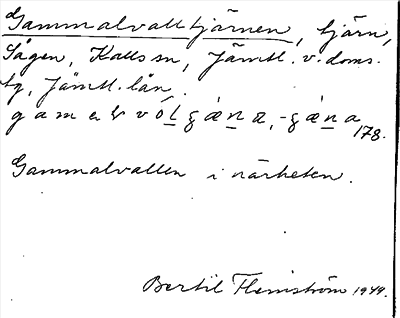 Gammalvalltjärnen, tjärn,
Sågen, Kalls sn, Jämtl. v. doms.
tg, Jämtl. län.
178.
Gammalvallen i närheten.
Bertil Flemström 1944.